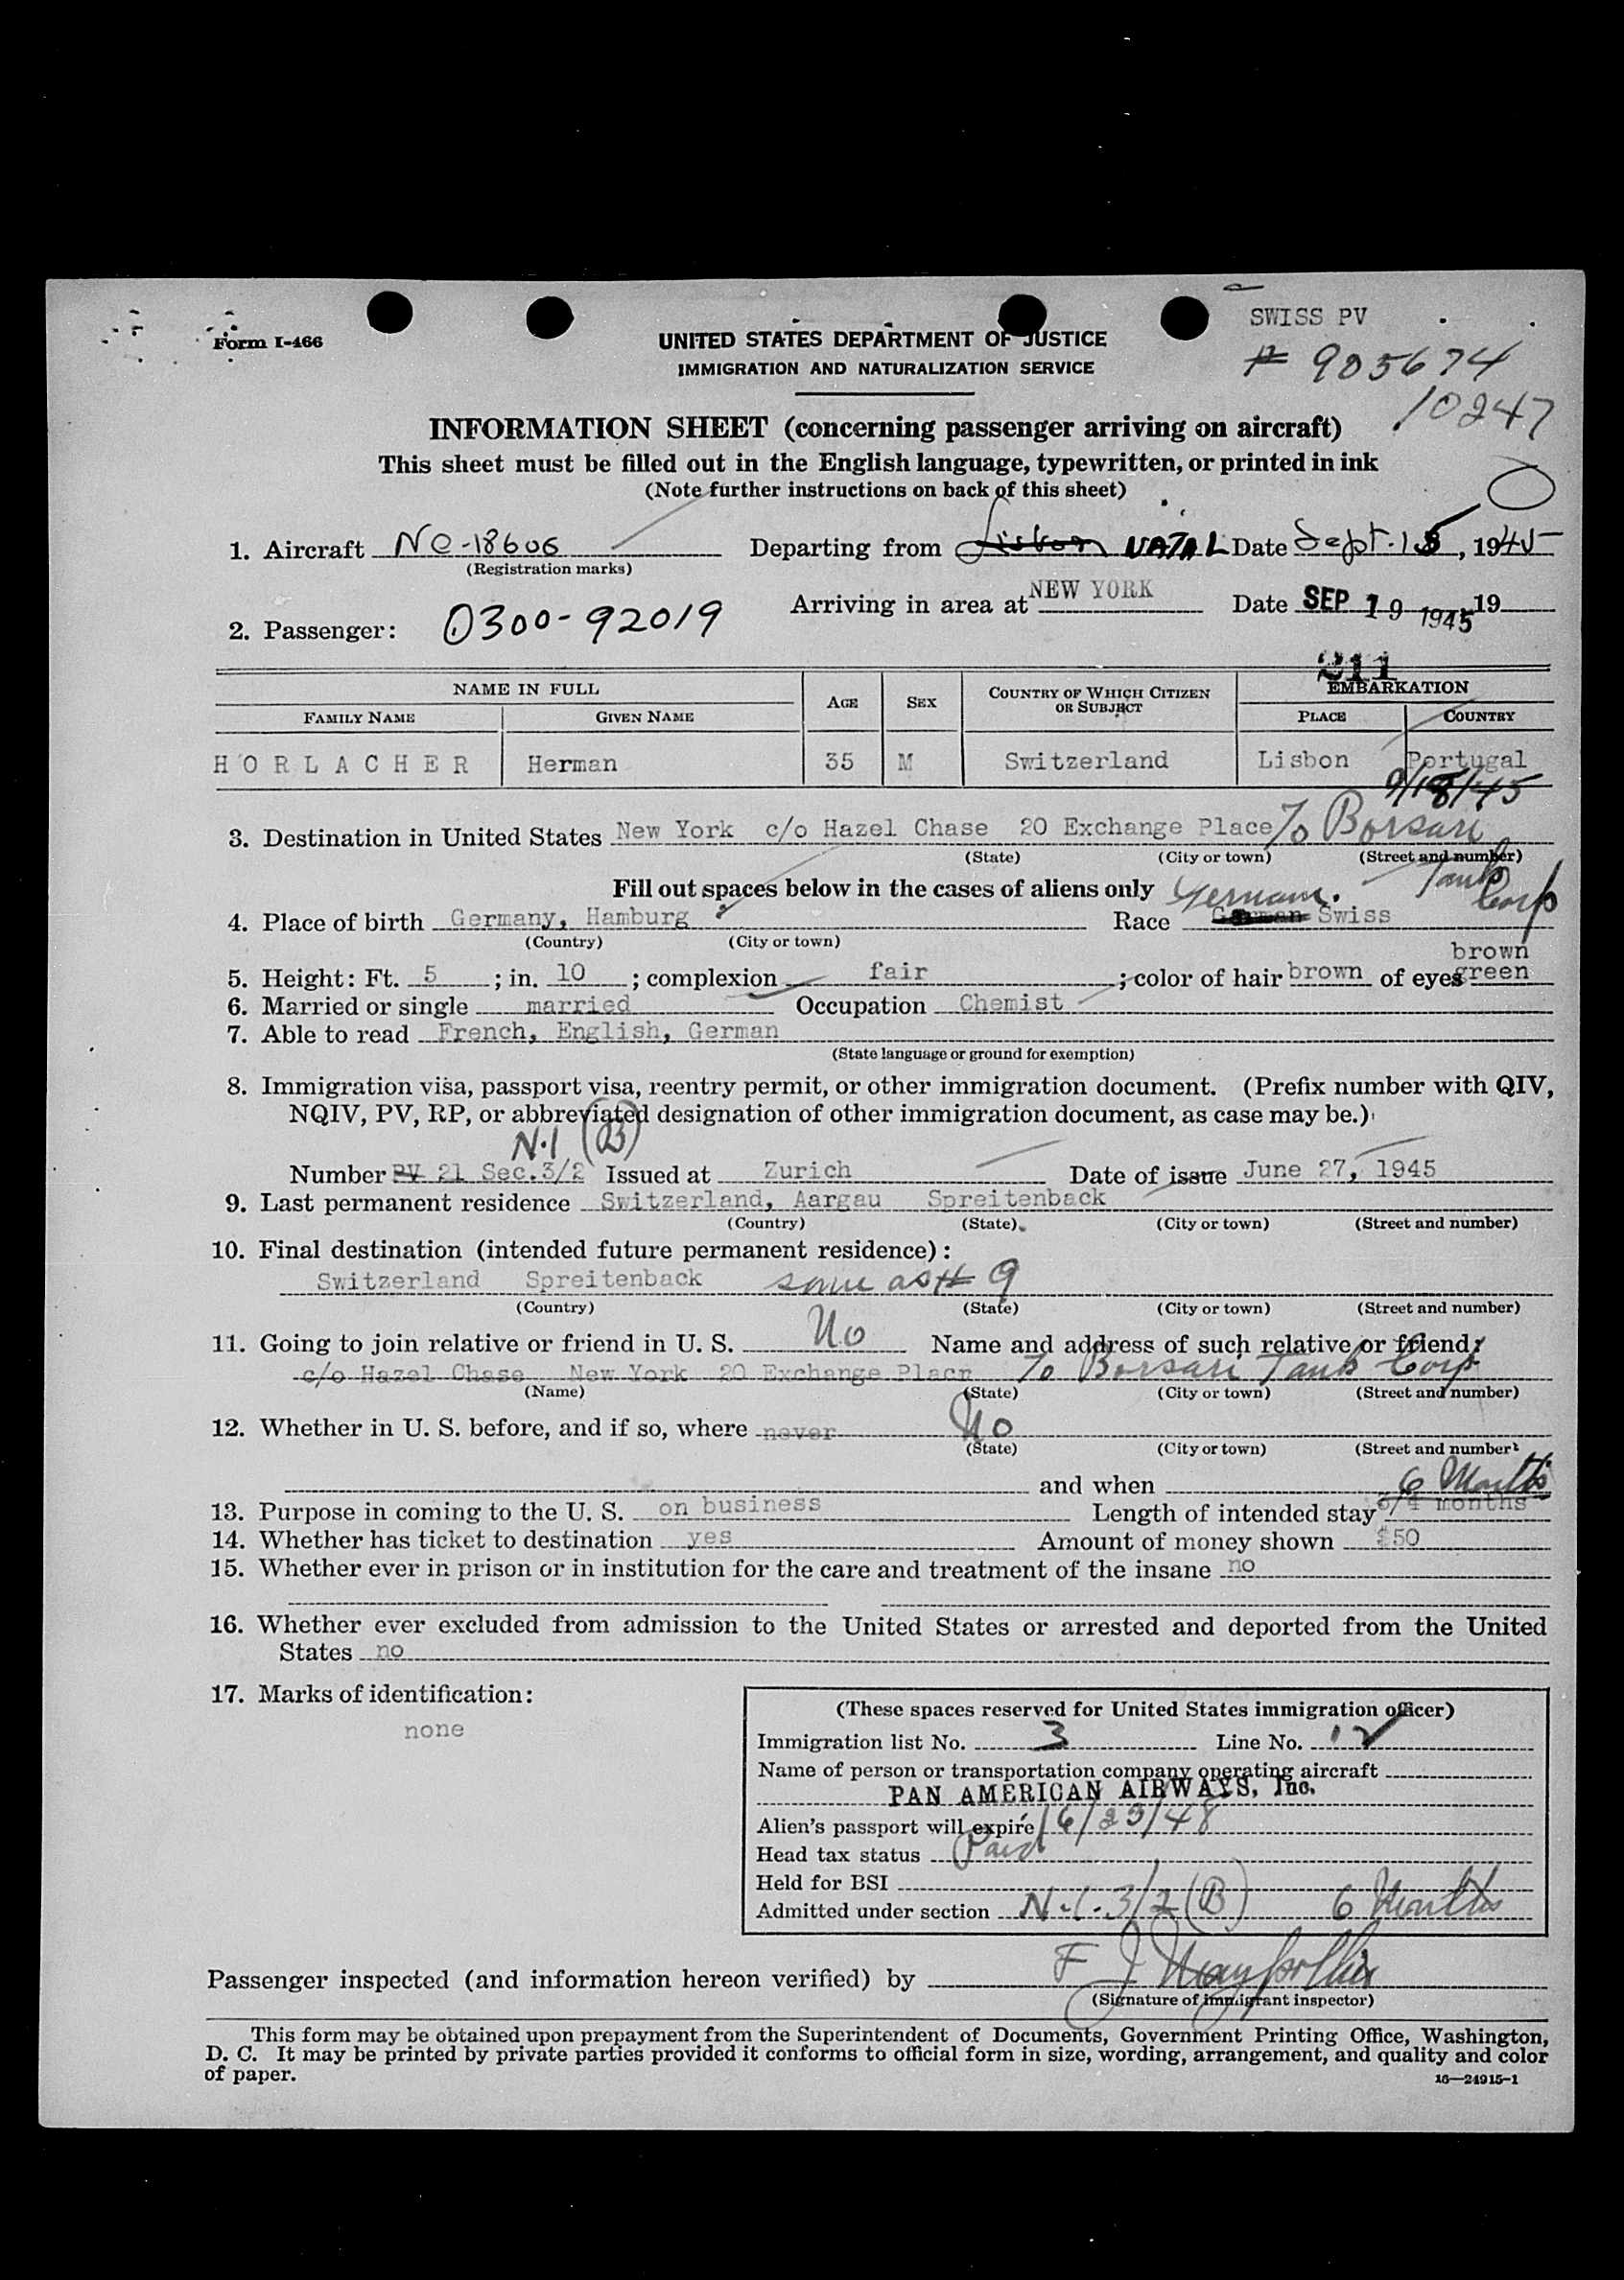 SWISS PV
Form I-466
UNITED STATES DEPARTMENT OF JUSTICE
# 905674
IMMIGRATION AND NATURALIZATION SERVICE
10247
INFORMATION SHEET (concerning passenger arriving on aircraft)
This sheet must be filled out in the English language, typewritten, or printed in ink
(Note further instructions on back of this sheet)
1. Aircraft NC-18606 Departing from Lisbon NATAL Date Sept. 18, 1945
(Registration marks)
Arriving in area at NEW YORK Date SEP 19 1945 19
2. Passenger: 0300-92019
211
NAME IN FULL AGE SEX COUNTRY OF WHICH CITIZEN OR SUBJECT EMBARKATION
FAMILY NAME GIVEN NAME PLACE COUNTRY
HORLACHER Herman 35 M Switzerland Lisbon Portugal
9/18/45
3. Destination in United States New York c/o Hazel Chase 20 Exchange Place To Borsari
(State) (City or town) (Street and number)
Tank Corp
Fill out spaces below in the cases of aliens only German.
4. Place of birth Germany, Hamburg Race German Swiss
(Country) (City or town)
brown
5. Height: Ft. 5; in. 10; complexion fair; color of hair brown of eyes green
6. Married or single married Occupation Chemist
7. Able to read French, English, German
(State language or ground for exemption)
8. Immigration visa, passport visa, reentry permit, or other immigration document. (Prefix number with QIV,
NQIV, PV, RP, or abbreviated designation of other immigration document, as case may be.)
N.I (B)
Number PV 21 Sec.3/2 Issued at Zurich Date of issue June 27, 1945
9. Last permanent residence Switzerland, Aargau Spreitenback
(Country) (State) (City or town) (Street and number)
10. Final destination (intended future permanent residence):
Switzerland Spreitenback same as # 9
(Country) (State) (City or town) (Street and number)
11. Going to join relative or friend in U. S. No Name and address of such relative or friend:
c/o Hazel Chase New York 20 Exchange Placr To Borsari Tank Corp
(Name) (State) (City or town) (Street and number)
12. Whether in U. S. before, and if so, where never No
(State) (City or town) (Street and number)
and when
6 Months
13. Purpose in coming to the U. S. on business Length of intended stay 3/4 months
14. Whether has ticket to destination yes Amount of money shown $50
15. Whether ever in prison or in institution for the care and treatment of the insane no
16. Whether ever excluded from admission to the United States or arrested and deported from the United
States no
17. Marks of identification:
none
(These spaces reserved for United States immigration officer)
Immigration list No. 3 Line No. 12
Name of person or transportation company operating aircraft
PAN AMERICAN AIRWAYS, Inc.
Alien's passport will expire 6/23/48
Head tax status Paid
Held for BSI
Admitted under section N.I. 3/2 (B) 6 Months
Passenger inspected (and information hereon verified) by F J
(Signature of immigrant inspector)
This form may be obtained upon prepayment from the Superintendent of Documents, Government Printing Office, Washington,
D. C. It may be printed by private parties provided it conforms to official form in size, wording, arrangement, and quality and color
of paper.
16—24915-1